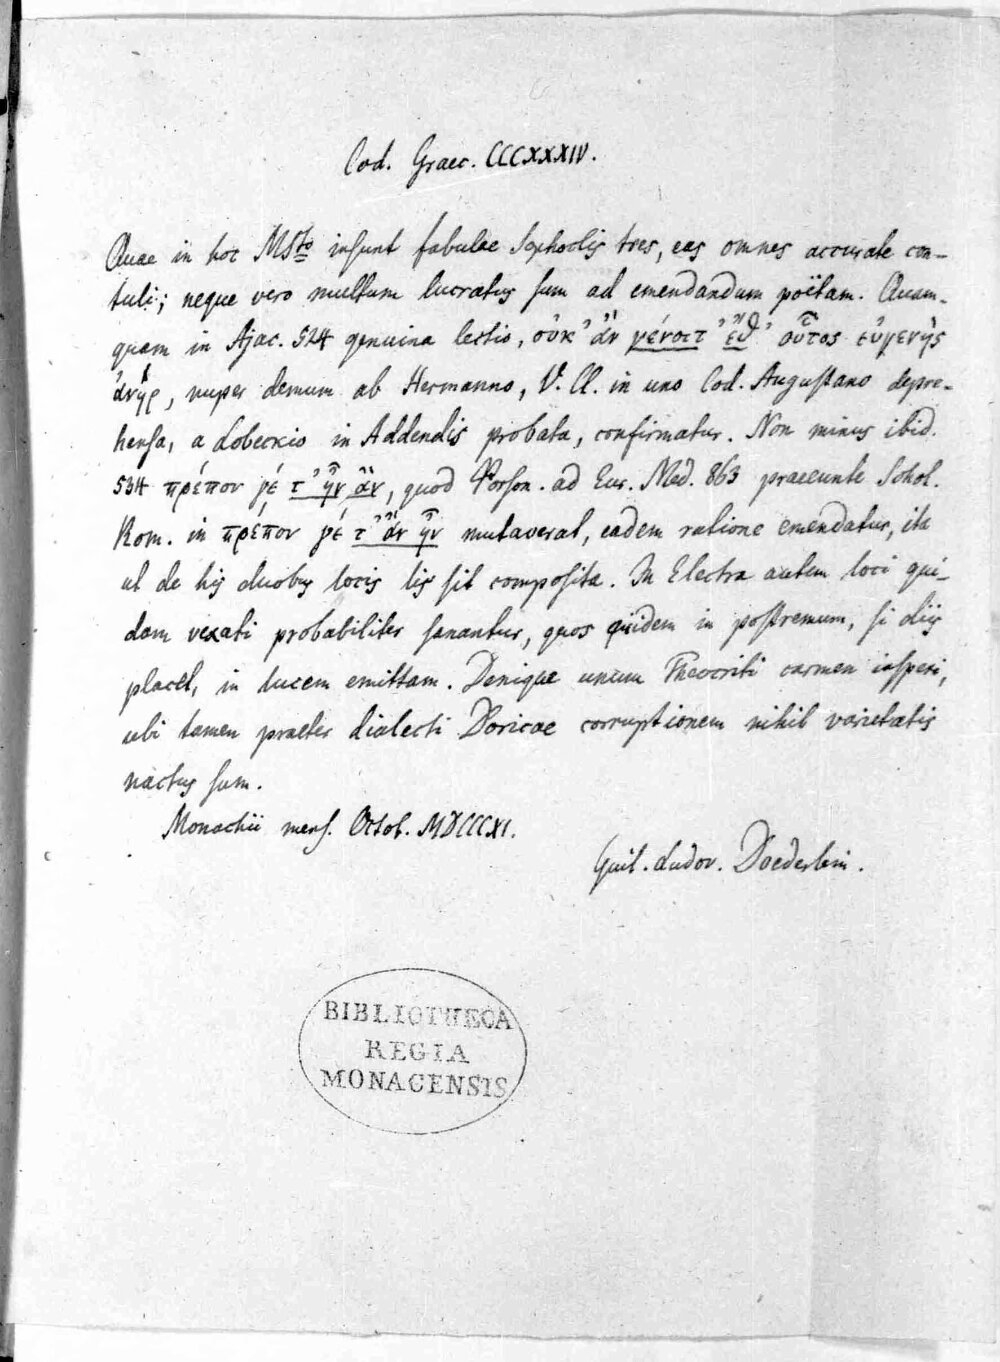 Cod. Graec. CCCXXXIV.
Quae in hoc MSto insunt fabulae Sophoclis tres, eas omnes accurate con-
tuli; neque vero multum lucratus sum ad emendandum poëtam. Quam-
quam in Ajac. 524 genuina lectio, οὐκ ἂν γένοιτ᾽ ἔθ᾽ οὗτος εὐγενὴς
ἀνὴρ, nuper demum ab Hermanno, V. Cl. in uno Cod. Augustano depre-
hensa, a Lobeckio in Addendis probata, confirmatur. Non minus ibid.
534 πρέπον γέ τ᾽ ἦν ἂν, quod Porson. ad Eur. Med. 863 praeeunte Schol.
Rom. in πρέπον γέ τ᾽ ἂν ἦν mutaverat, eadem ratione emendatur, ita
ut de his duobus locis lis sit composita. In Electra autem loci qui-
dam vexati probabiliter sanantur, quos quidem in postremum, si diis
placet, in lucem emittam. Denique unum Theocriti carmen inspexi,
ubi tamen praeter dialecti Doricae corruptionem nihil varietatis
nactus sum.
Monachii mens. Octob. MDCCCXI.
Guil. Ludov. Doederlein.
BIBLIOTHECA
REGIA
MONACENSIS